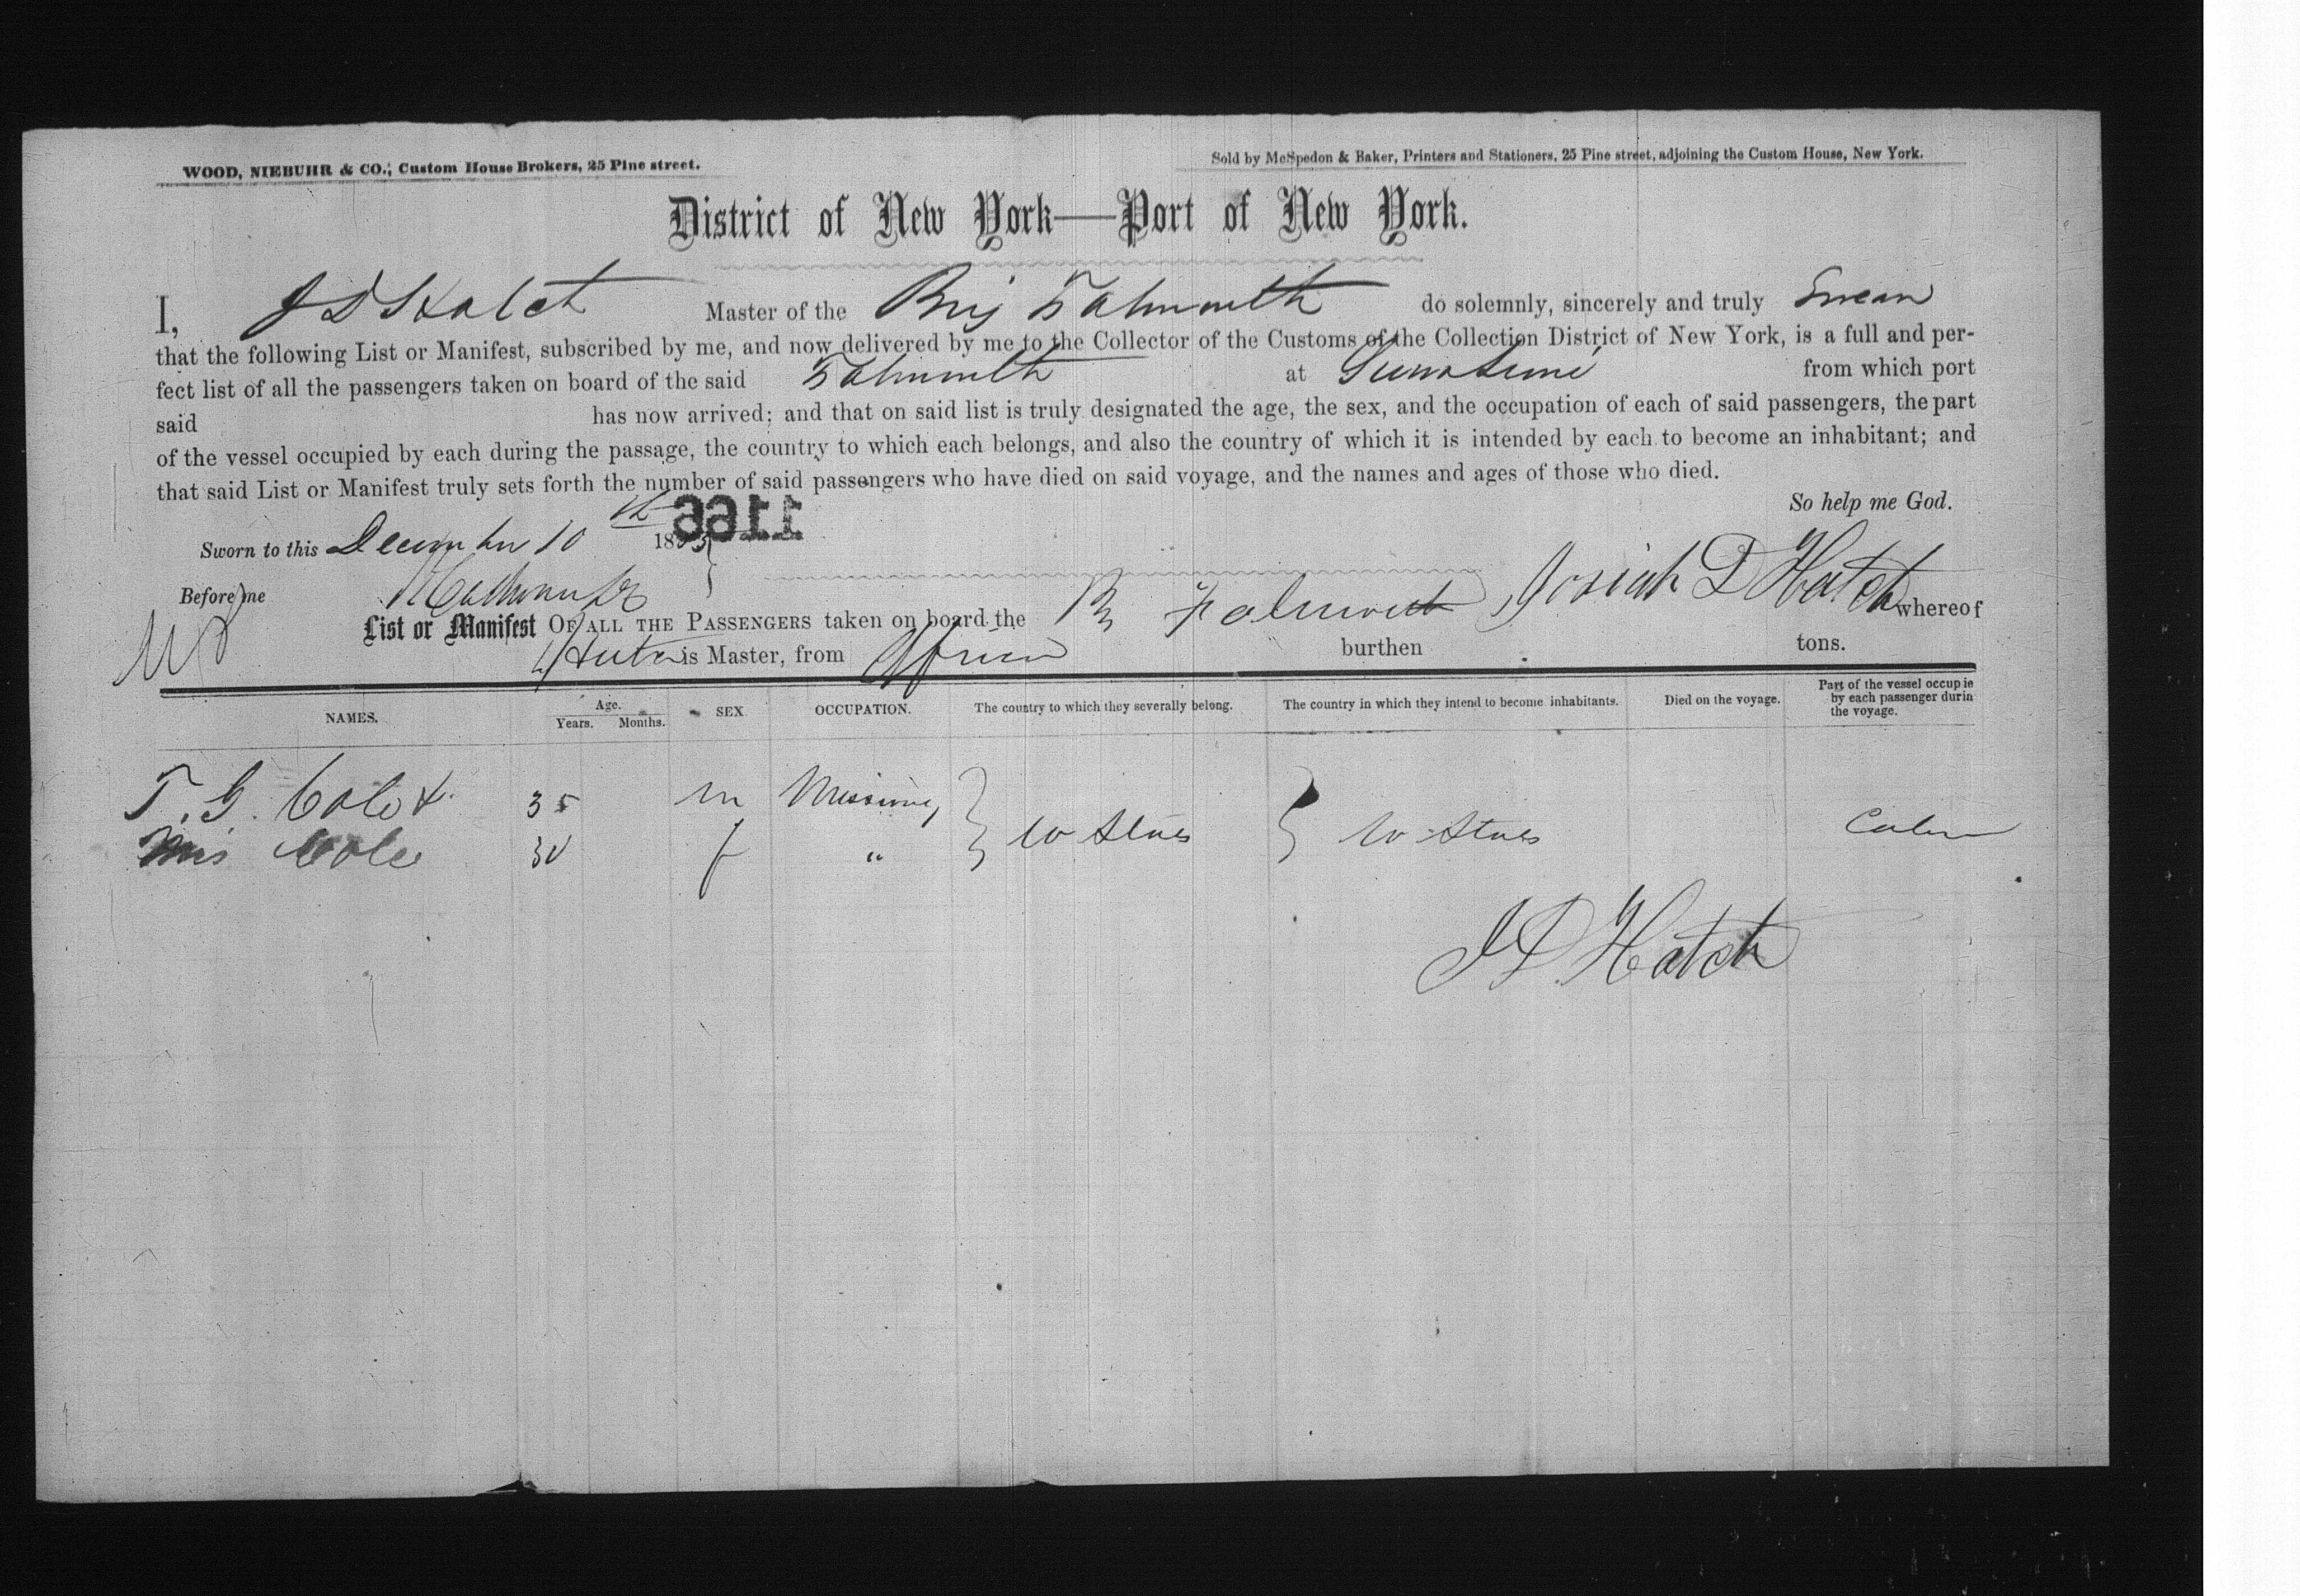 WOOD, NIEBUHR & CO., Custom House Brokers, 25 Pine street.
Sold by McSpedon & Baker, Printers and Stationers, 25 Pine street, adjoining the Custom House, New York.
District of New York—Port of New York.
I, J D Hatch Master of the Brig Falmouth do solemnly, sincerely and truly Swear
that the following List or Manifest, subscribed by me, and now delivered by me to the Collector of the Customs of the Collection District of New York, is a full and per-
fect list of all the passengers taken on board of the said Falmouth at from which port
said has now arrived; and that on said list is truly designated the age, the sex, and the occupation of each of said passengers, the part
of the vessel occupied by each during the passage, the country to which each belongs, and also the country of which it is intended by each to become an inhabitant; and
that said List or Manifest truly sets forth the number of said passengers who have died on said voyage, and the names and ages of those who died.
So help me God.
1166
Sworn to this December 10th 185
Before me
Josiah D Hatch
List or Manifest OF ALL THE PASSENGERS taken on board the Br Falmouth whereof
Hatch is Master, from Africa burthen tons.
NAMES. Age. Years. Months. SEX OCCUPATION. The country to which they severally belong. The country in which they intend to become inhabitants. Died on the voyage. Part of the vessel occupie by each passenger durin the voyage.
T. G. Cole 35 m } U States } U States Cabin
Mrs Cole 30 f "
J D Hatch